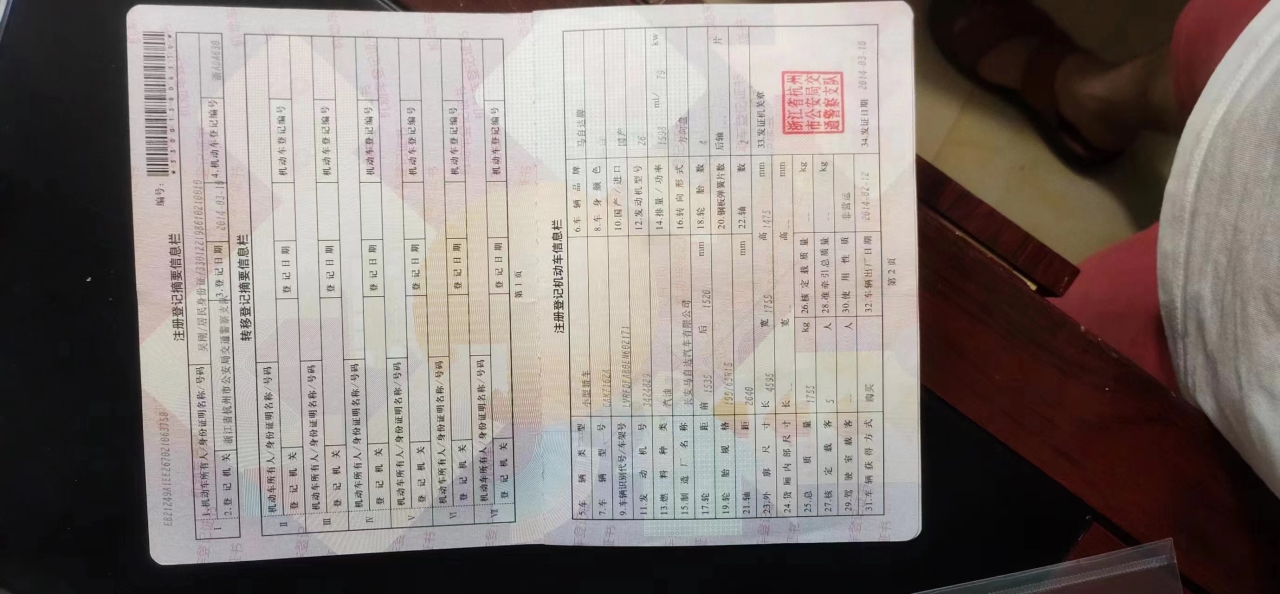 编号:
注册登记摘要信息栏
I 1.机动车所有人/身份证明名称/号码 吴刚/居民身份证/
2.登记机关 浙江省杭州市公安局交通警察支队 3.登记日期 2014-03-10 4.机动车登记编号
转移登记摘要信息栏
II 机动车所有人/身份证明名称/号码
登记机关 登记日期 机动车登记编号
III 机动车所有人/身份证明名称/号码
登记机关 登记日期 机动车登记编号
IV 机动车所有人/身份证明名称/号码
登记机关 登记日期 机动车登记编号
V 机动车所有人/身份证明名称/号码
登记机关 登记日期 机动车登记编号
VI 机动车所有人/身份证明名称/号码
登记机关 登记日期 机动车登记编号
VII 机动车所有人/身份证明名称/号码
登记机关 登记日期 机动车登记编号
第 1 页
注册登记机动车信息栏
5.车辆类型 小型轿车 6.车辆品牌 马自达牌
7.车辆型号 8.车身颜色
9.车辆识别代号/车架号 10.国产/进口 国产
11.发动机号 12.发动机型号
13.燃料种类 汽油 14.排量/功率 ml/ kw
15.制造厂名称 长安马自达汽车有限公司 16.转向形式 方向盘
17.轮距 前 1535 后 1520 mm 18.轮胎数 4
19.轮胎规格 20.钢板弹簧片数 后轴 片
21.轴距 2640 mm 22.轴数 2
23.外廓尺寸 长 4595 宽 1755 高 1475 mm 33.发证机关章
浙江省杭州市公安局交通警察支队
24.货厢内部尺寸 长 宽 高 mm
25.总质量 1755 kg 26.核定载质量 kg
27.核定载客 5 人 28.准牵引总质量 kg
29.驾驶室载客 人 30.使用性质 非营运
31.车辆获得方式 购买 32.车辆出厂日期 2014-02-12 34.发证日期 2014-03-10
第 2 页